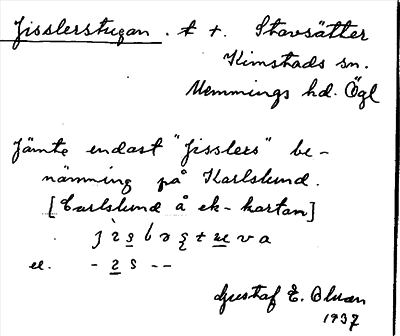 Jisslerstugan. t t. Stavsätter
Kimstads sn.
Memmings hd. Ögl
Jämte endast "Jisslers" be-
nämning på Karlslund.
[Carlslund å ek-kartan]
el. - 2 s --
Gustaf E.
1937